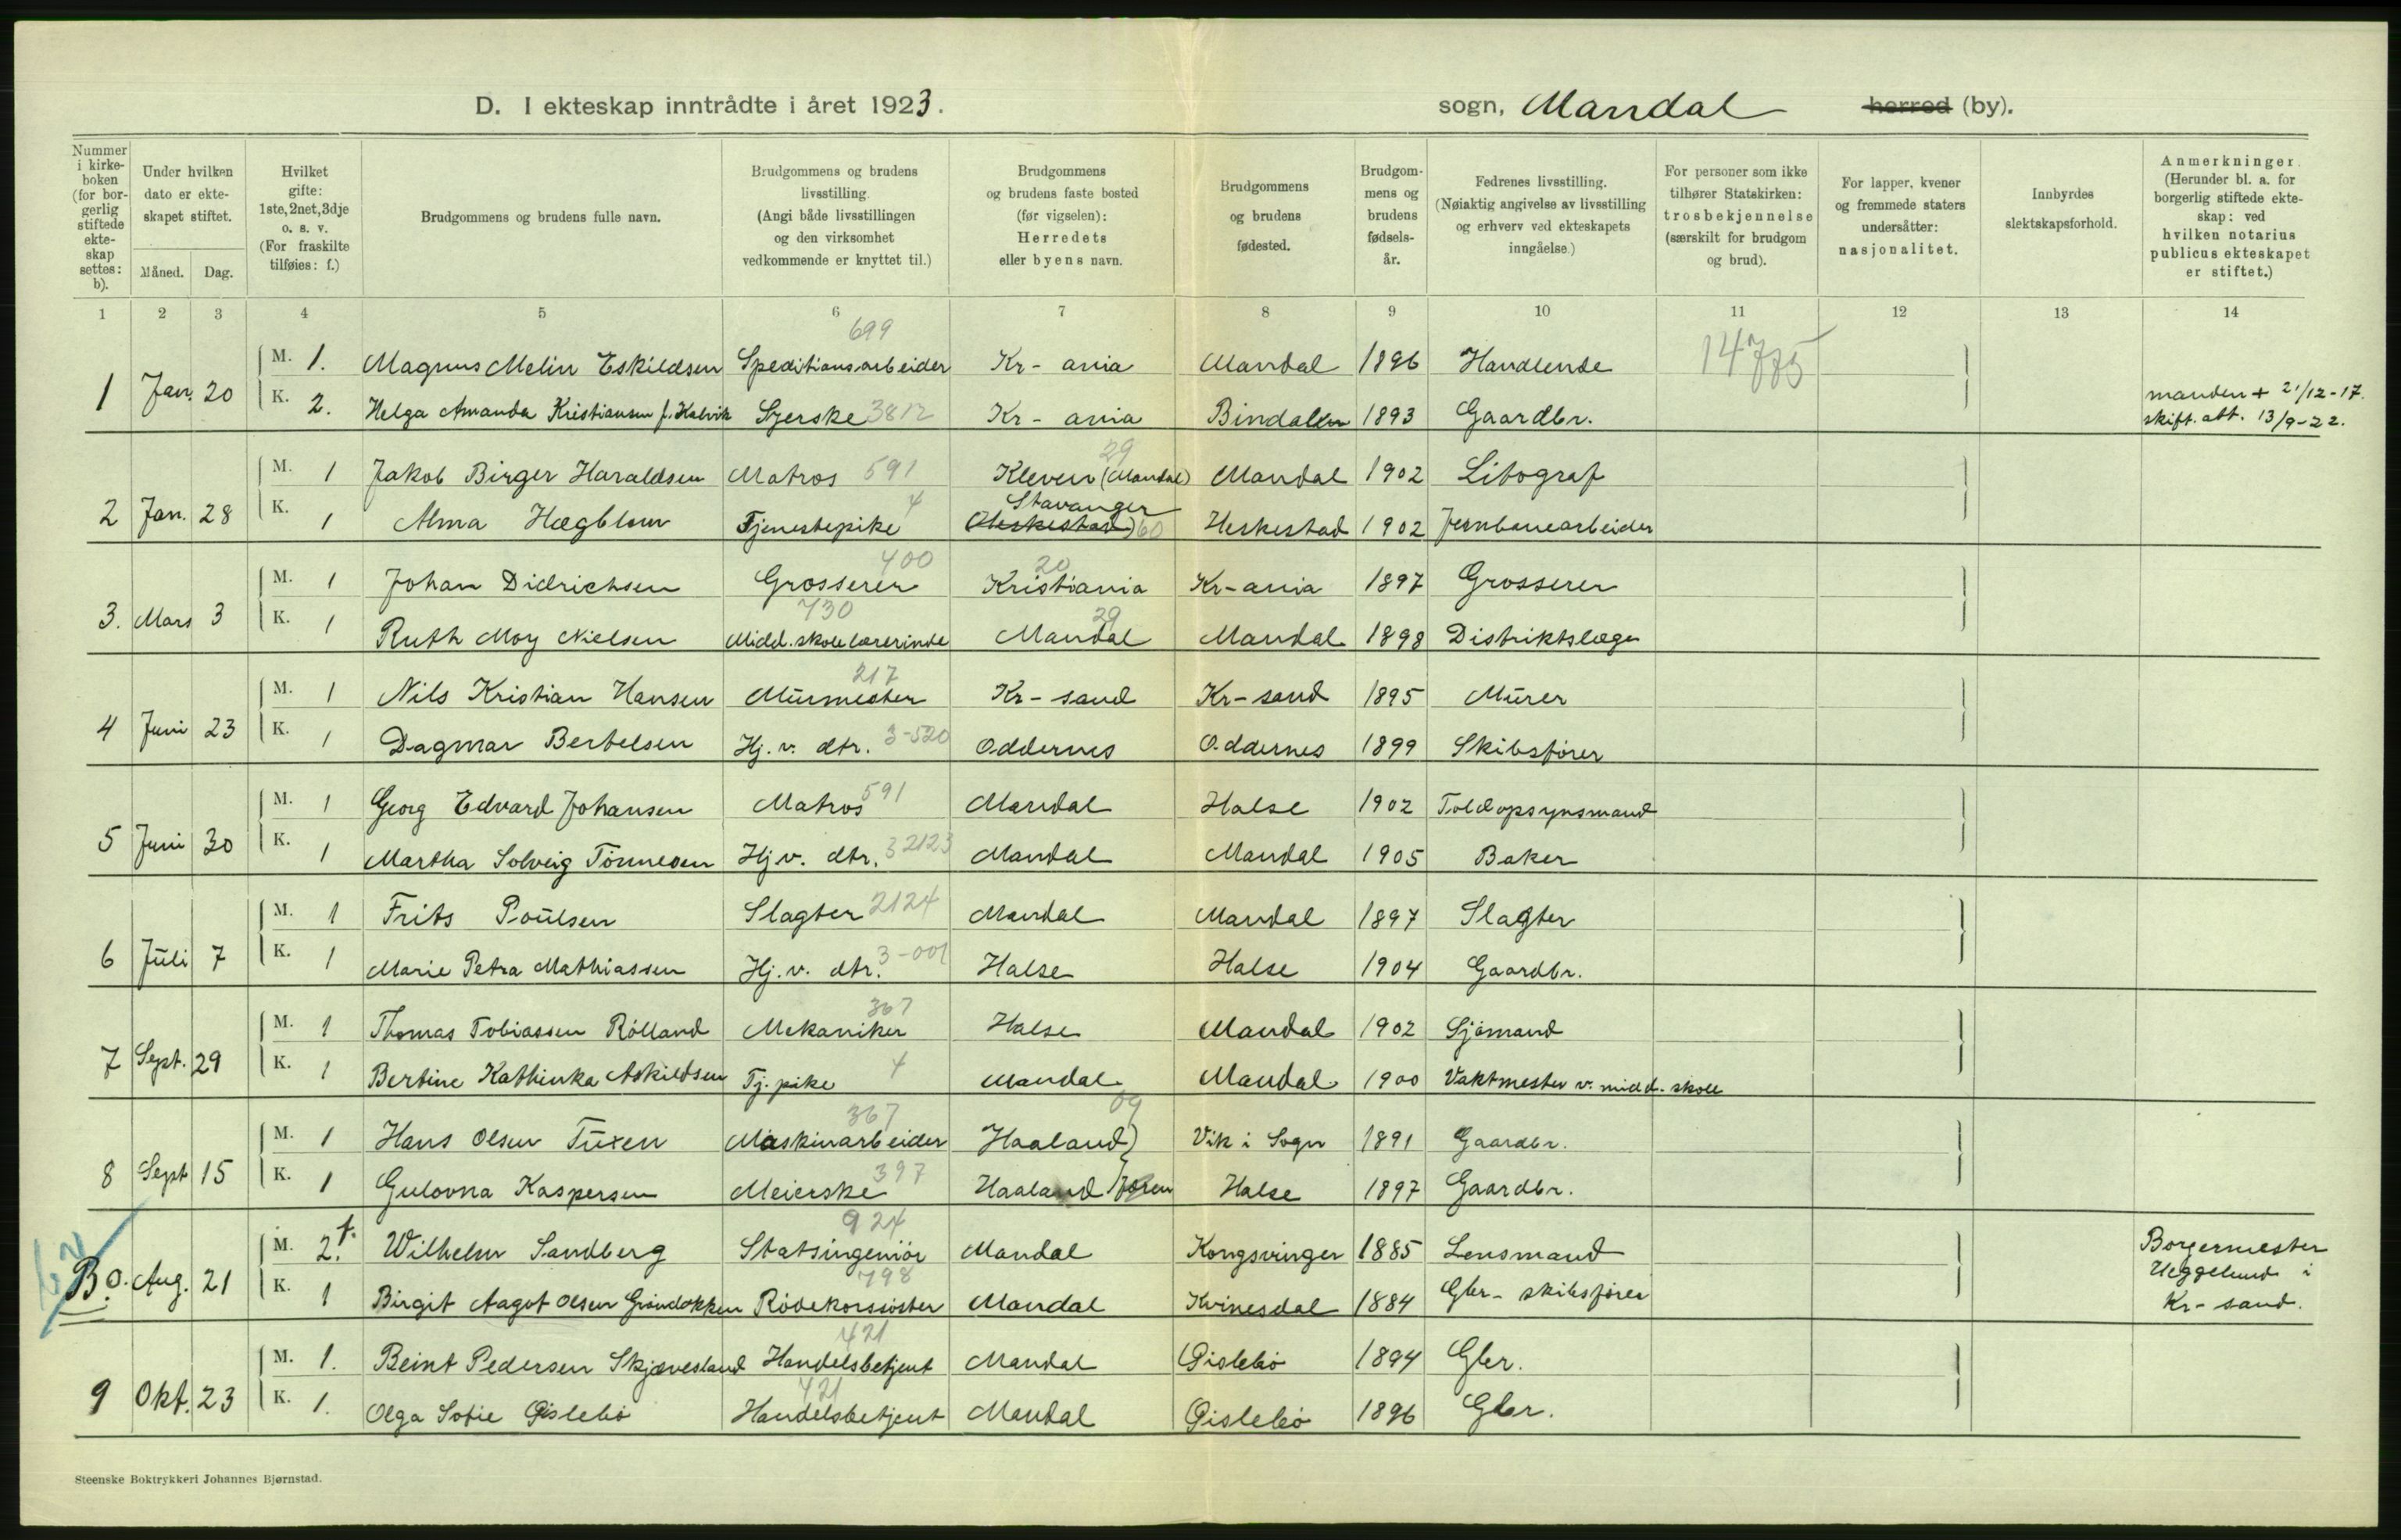 D. I ekteskap inntrådte i året 1923.
sogn, Mandal herred (by).
Nummer i kirke-boken (for bor-gerlig stiftede ekte-skap settes: b).
Under hvilken dato er ekte-skapet stiftet.
Måned. Dag.
Hvilket gifte: 1ste, 2net, 3dje o. s. v. (For fraskilte tilføies: f.)
Brudgommens og brudens fulle navn.
Brudgommens og brudens livsstilling. (Angi både livsstillingen og den virksomhet vedkommende er knyttet til.)
Brudgommens og brudens faste bosted (før vigselen): Herredets eller byens navn.
Brudgommens og brudens fødested.
Brudgom-mens og brudens fødsels-år.
Fedrenes livsstilling. (Nøiaktig angivelse av livsstilling og erhverv ved ekteskapets inngåelse.)
For personer som ikke tilhører Statskirken: trosbekjennelse (særskilt for brudgom og brud).
For lapper, kvener og fremmede staters undersåtter: nasjonalitet.
Innbyrdes slektskapsforhold.
Anmerkninger. (Herunder bl. a. for borgerlig stiftede ekte-skap: ved hvilken notarius publicus ekteskapet er stiftet.)
1 2 3 4 5 6 7 8 9 10 11 12 13 14
699
M. 1. Magnus Melin Eskildsen Speditionsarbeider Kr-ania Mandal 1896 Handlende
1 Jan. 20
K. 2. Helga Amanda Kristiansen f. Kalvik Syerske 3812 Kr-ania Bindalen 1893 Gaardbr. manden + 21/12-17.
skift. att. 13/9-22.
29
M. 1 Jakob Birger Haraldsen Matros 591 Kleven (Mandal) Mandal 1902 Litograf
4 Stavanger
2 Jan. 28
K. 1 Alma Hægblom Tjenestepike (Heskestad) 60 Heskestad 1902 Jernbanearbeider
400 20
M. 1 Johan Didrichsen Grosserer Kristiania Kr-ania 1897 Grosserer
730 29
3. Mars 3
K. 1 Ruth Moy Nielsen Midd.skolelærerinde Mandal Mandal 1898 Distriktslæge
217
M. 1 Nils Kristian Hansen Murmester Kr-sand Kr-sand 1895 Murer
4 Juni 23
K. 1 Dagmar Bertelsen Hj. v. dtr. 3-520 Oddernes Oddernes 1899 Skibsfører
M. 1 Georg Edvard Johansen Matros 591 Mandal Halse 1902 Toldopsynsmand
5 Juni 30
K. 1 Martha Solveig Tønnesen Hj. v. dtr. 3 2123 Mandal Mandal 1905 Baker
M. 1 Frits Poulsen Slagter 2124 Mandal Mandal 1897 Slagter
6 Juli 7
K. 1 Marie Petra Mathiassen Hj. v. dtr. 3-001 Halse Halse 1904 Gaardbr.
367
M. 1 Thomas Tobiassen Rølland Mekaniker Halse Mandal 1902 Sjømand
7 Sept. 29
K. 1 Bertine Kathinka Askildsen Tj. pike 4 Mandal Mandal 1900 Vaktmester v. midd. skole
367 09
M. 1 Hans Olsen Tuxen Maskinarbeider Haaland Vik i Sogn 1891 Gaardbr.
8 Sept 15
K. 1 Gulovna Kaspersen Meierske 397 Haaland Jæren Halse 1897 Gaardbr.
924
M. 2. f. Wilhelm Sandberg Statsingeniør Mandal Kongsvinger 1885 Lensmand Borgermester
Heggelund i
B. Aug. 21
798
K. 1 Birgit Aagot Olsen Grøndokken Rødekorssøster Mandal Kvinesdal 1884 Gbr- skibsfører Kr-sand.
421
M. 1. Beint Pedersen Skjævesland Handelsbetjent Mandal Gislebø 1894 Gbr.
9 Okt. 23
421
K. 1. Olga Sofie Gislebø Handelsbetjent Mandal Gislebø 1896 Gbr.
Steenske Boktrykkeri Johannes Bjørnstad.